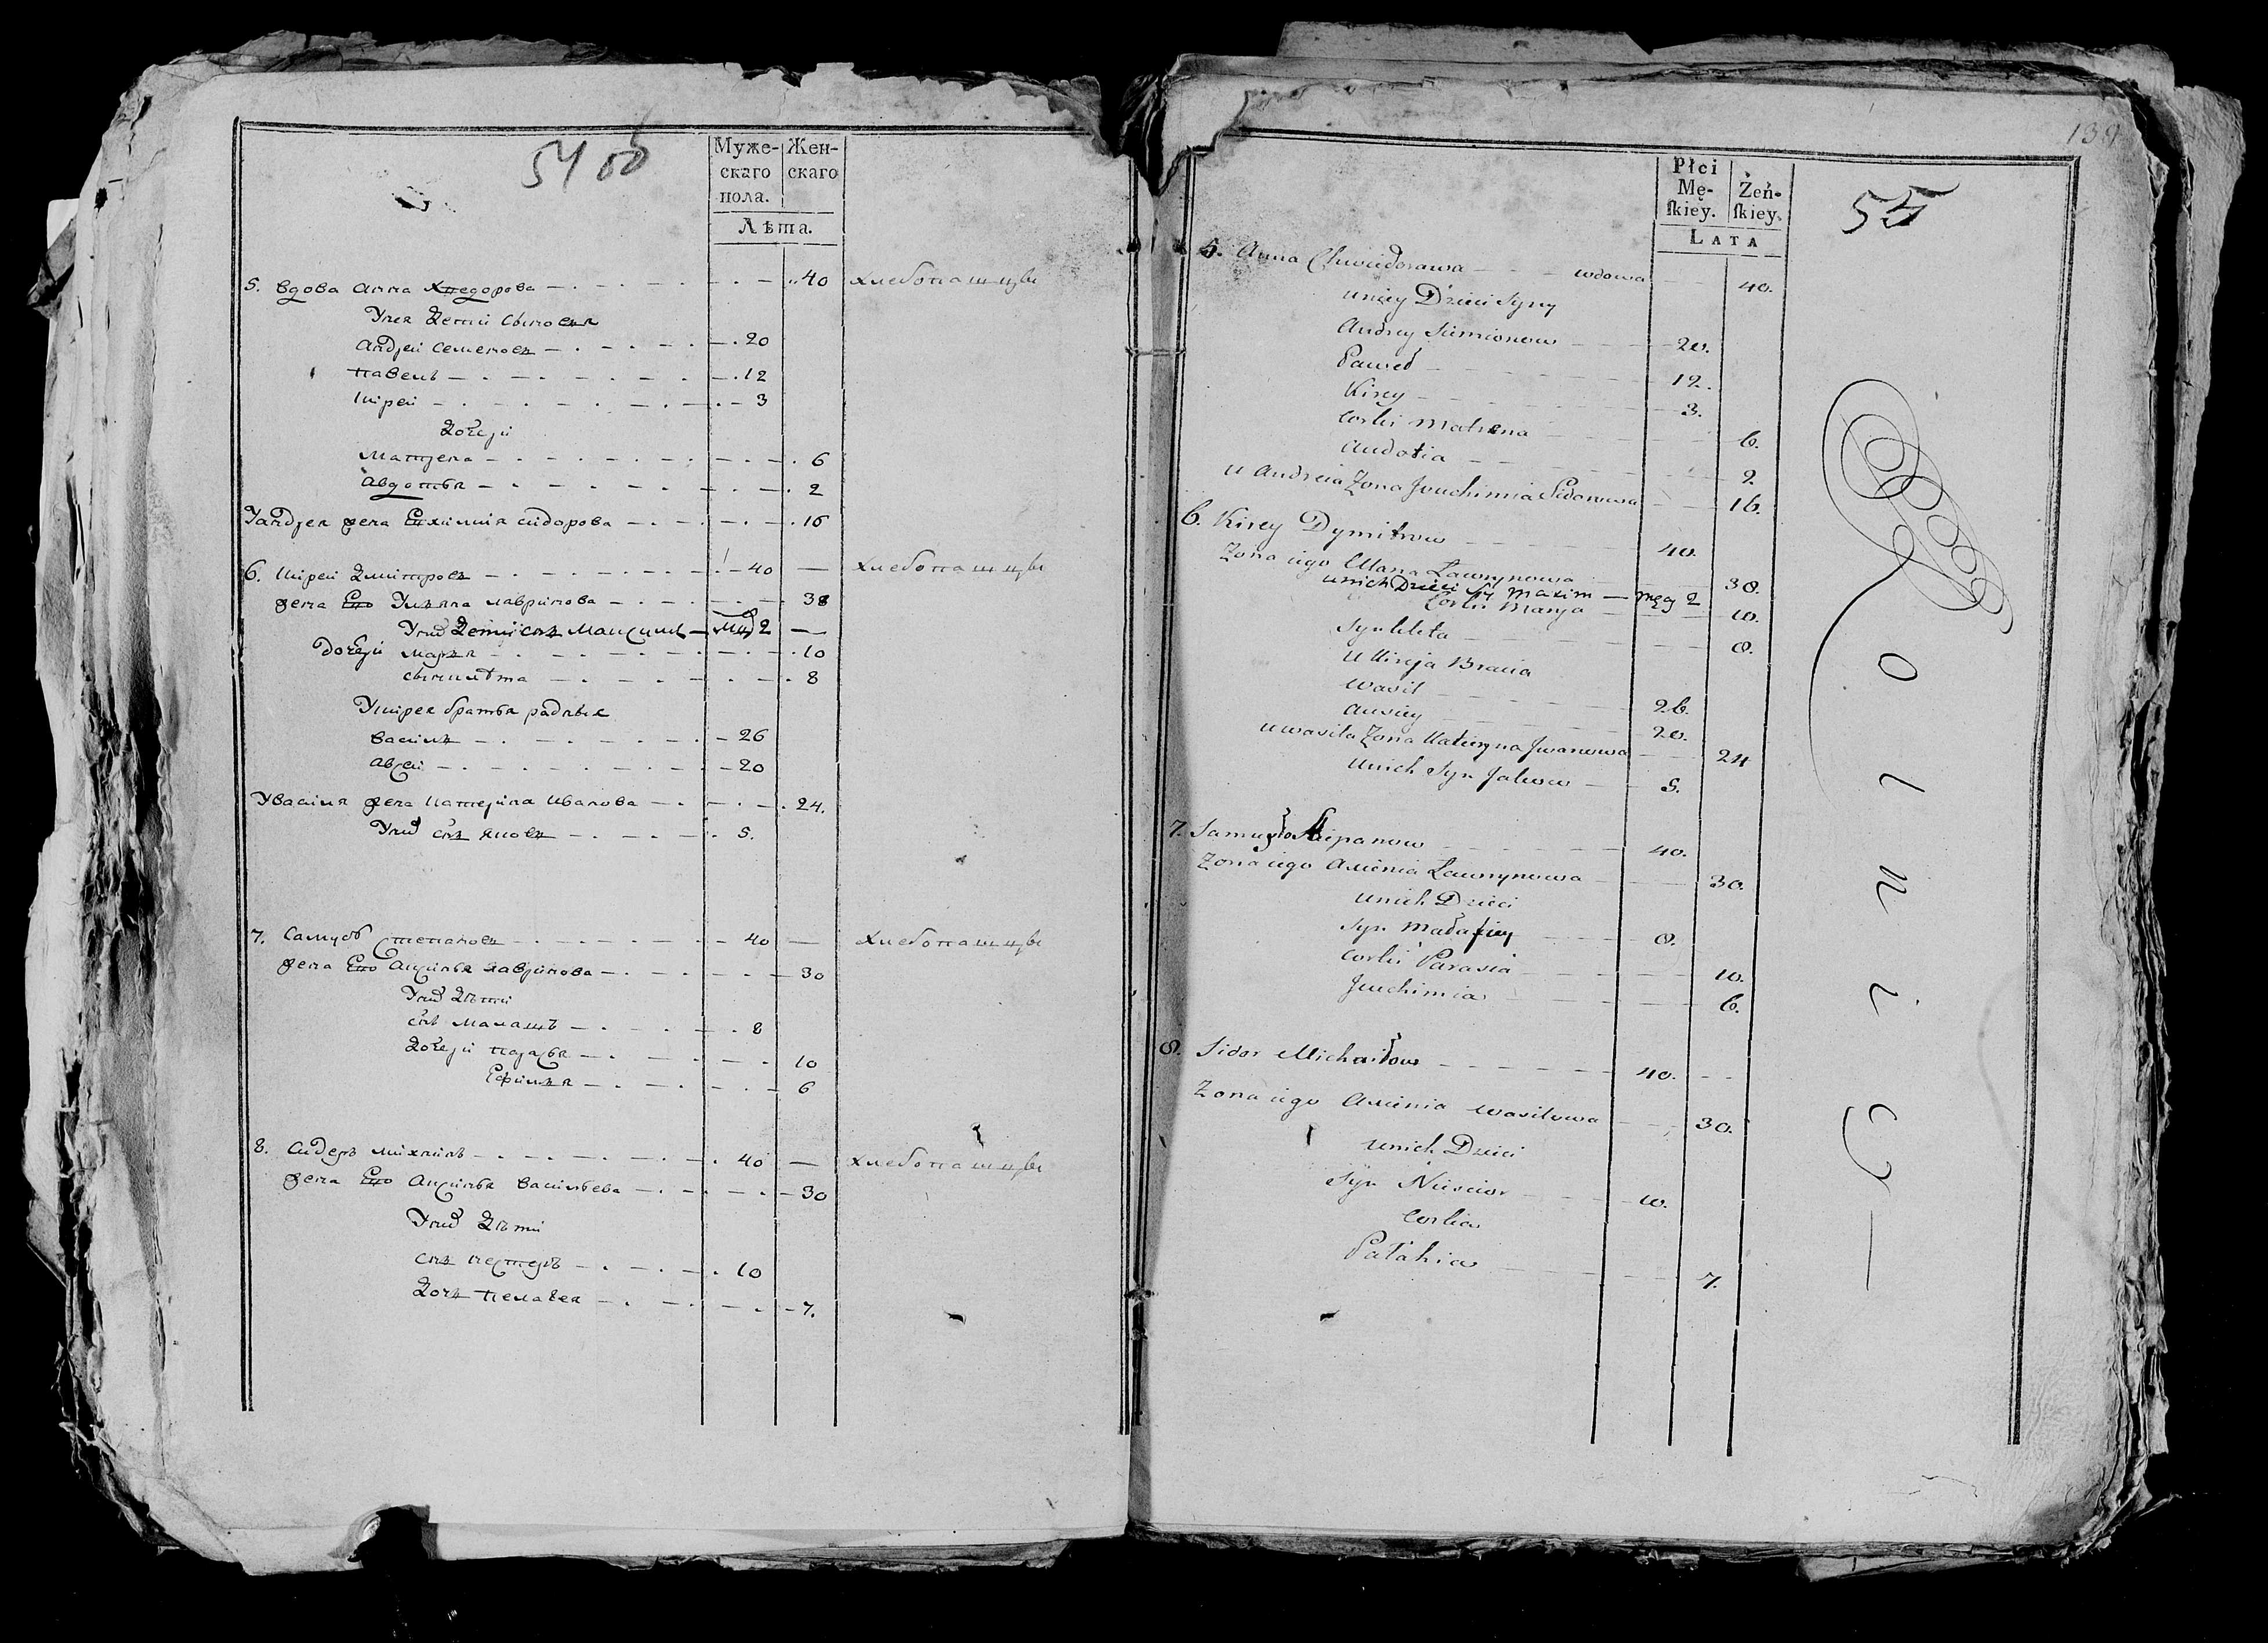 54 об
Муже- Жен-
скаго скаго
пола.
Лѣта.
5. вдова Анна Хведорова 40 хлебопашцы
У нея Дети сыновя
Андреи семеновъ 20
павелъ 12
кирей 3
Дочери
Матрена 6
Авдотья 2
У андрея жена Евхимия сидорова 16
6. кирей Дмитровъ 40 — хлебопашцы
жена Его Ульяна лавринова 38
У них Дети снъ Максимъ — мц 2 —
дочери марья 10
сынклѣта 8
У кирея братья родные
василь 26
авсей 20
У василя жена катерина иванова 24.
У них снъ яковъ 5.
7. самусь степановъ 40 — хлебопашцы
жена Его Аксинья лавринова 30
У них Дѣти
снъ малашъ 8
Дочери парасья 10
Ефимья 6
8. сидеръ михаилъ 40 — хлебопашцы
жена Его Аксинья васильева 30
У них Дѣти
снъ нестеръ 10
Дочь пелагея 7.
139
Płci
Mę- Żeń-
ſkiey. ſkiey.
LATA
55
5. Anna Chwiedorawa wdowa 40.
u niey Dzieci Syny
Andrey Simionow 20.
Paweł 12.
Kirey 3.
Corki Matrena 6.
Audotia 2
u Andreia Zona Jouchimia Sidorowa 16.
6. Kirey Dymitrow 40.
Zona iego Ulana Ławrynowa 38.
u nich Dzieci Sy Maxim — męcy 2
Corki Marya 10.
Synkleta 8.
U Kireja Bracia
Wasil 26.
Ausiey 20.
u Wasila Zona Kateryna Jwanowa 24
u nich Syn Jakow 5.
7. Samuyło Stepanow 40.
Zona iego Axienia Ławrynowa 30.
u nich Dzieci
Syn 8.
Corki Parasia 10.
Jouchimia 6.
8. Sidor Michaiłow 40.
Zona iego Axienia Wasilowa 30.
u nich Dzieci
Syn Niescior 10.
Corka
Pałahia 7.
Rolnicy